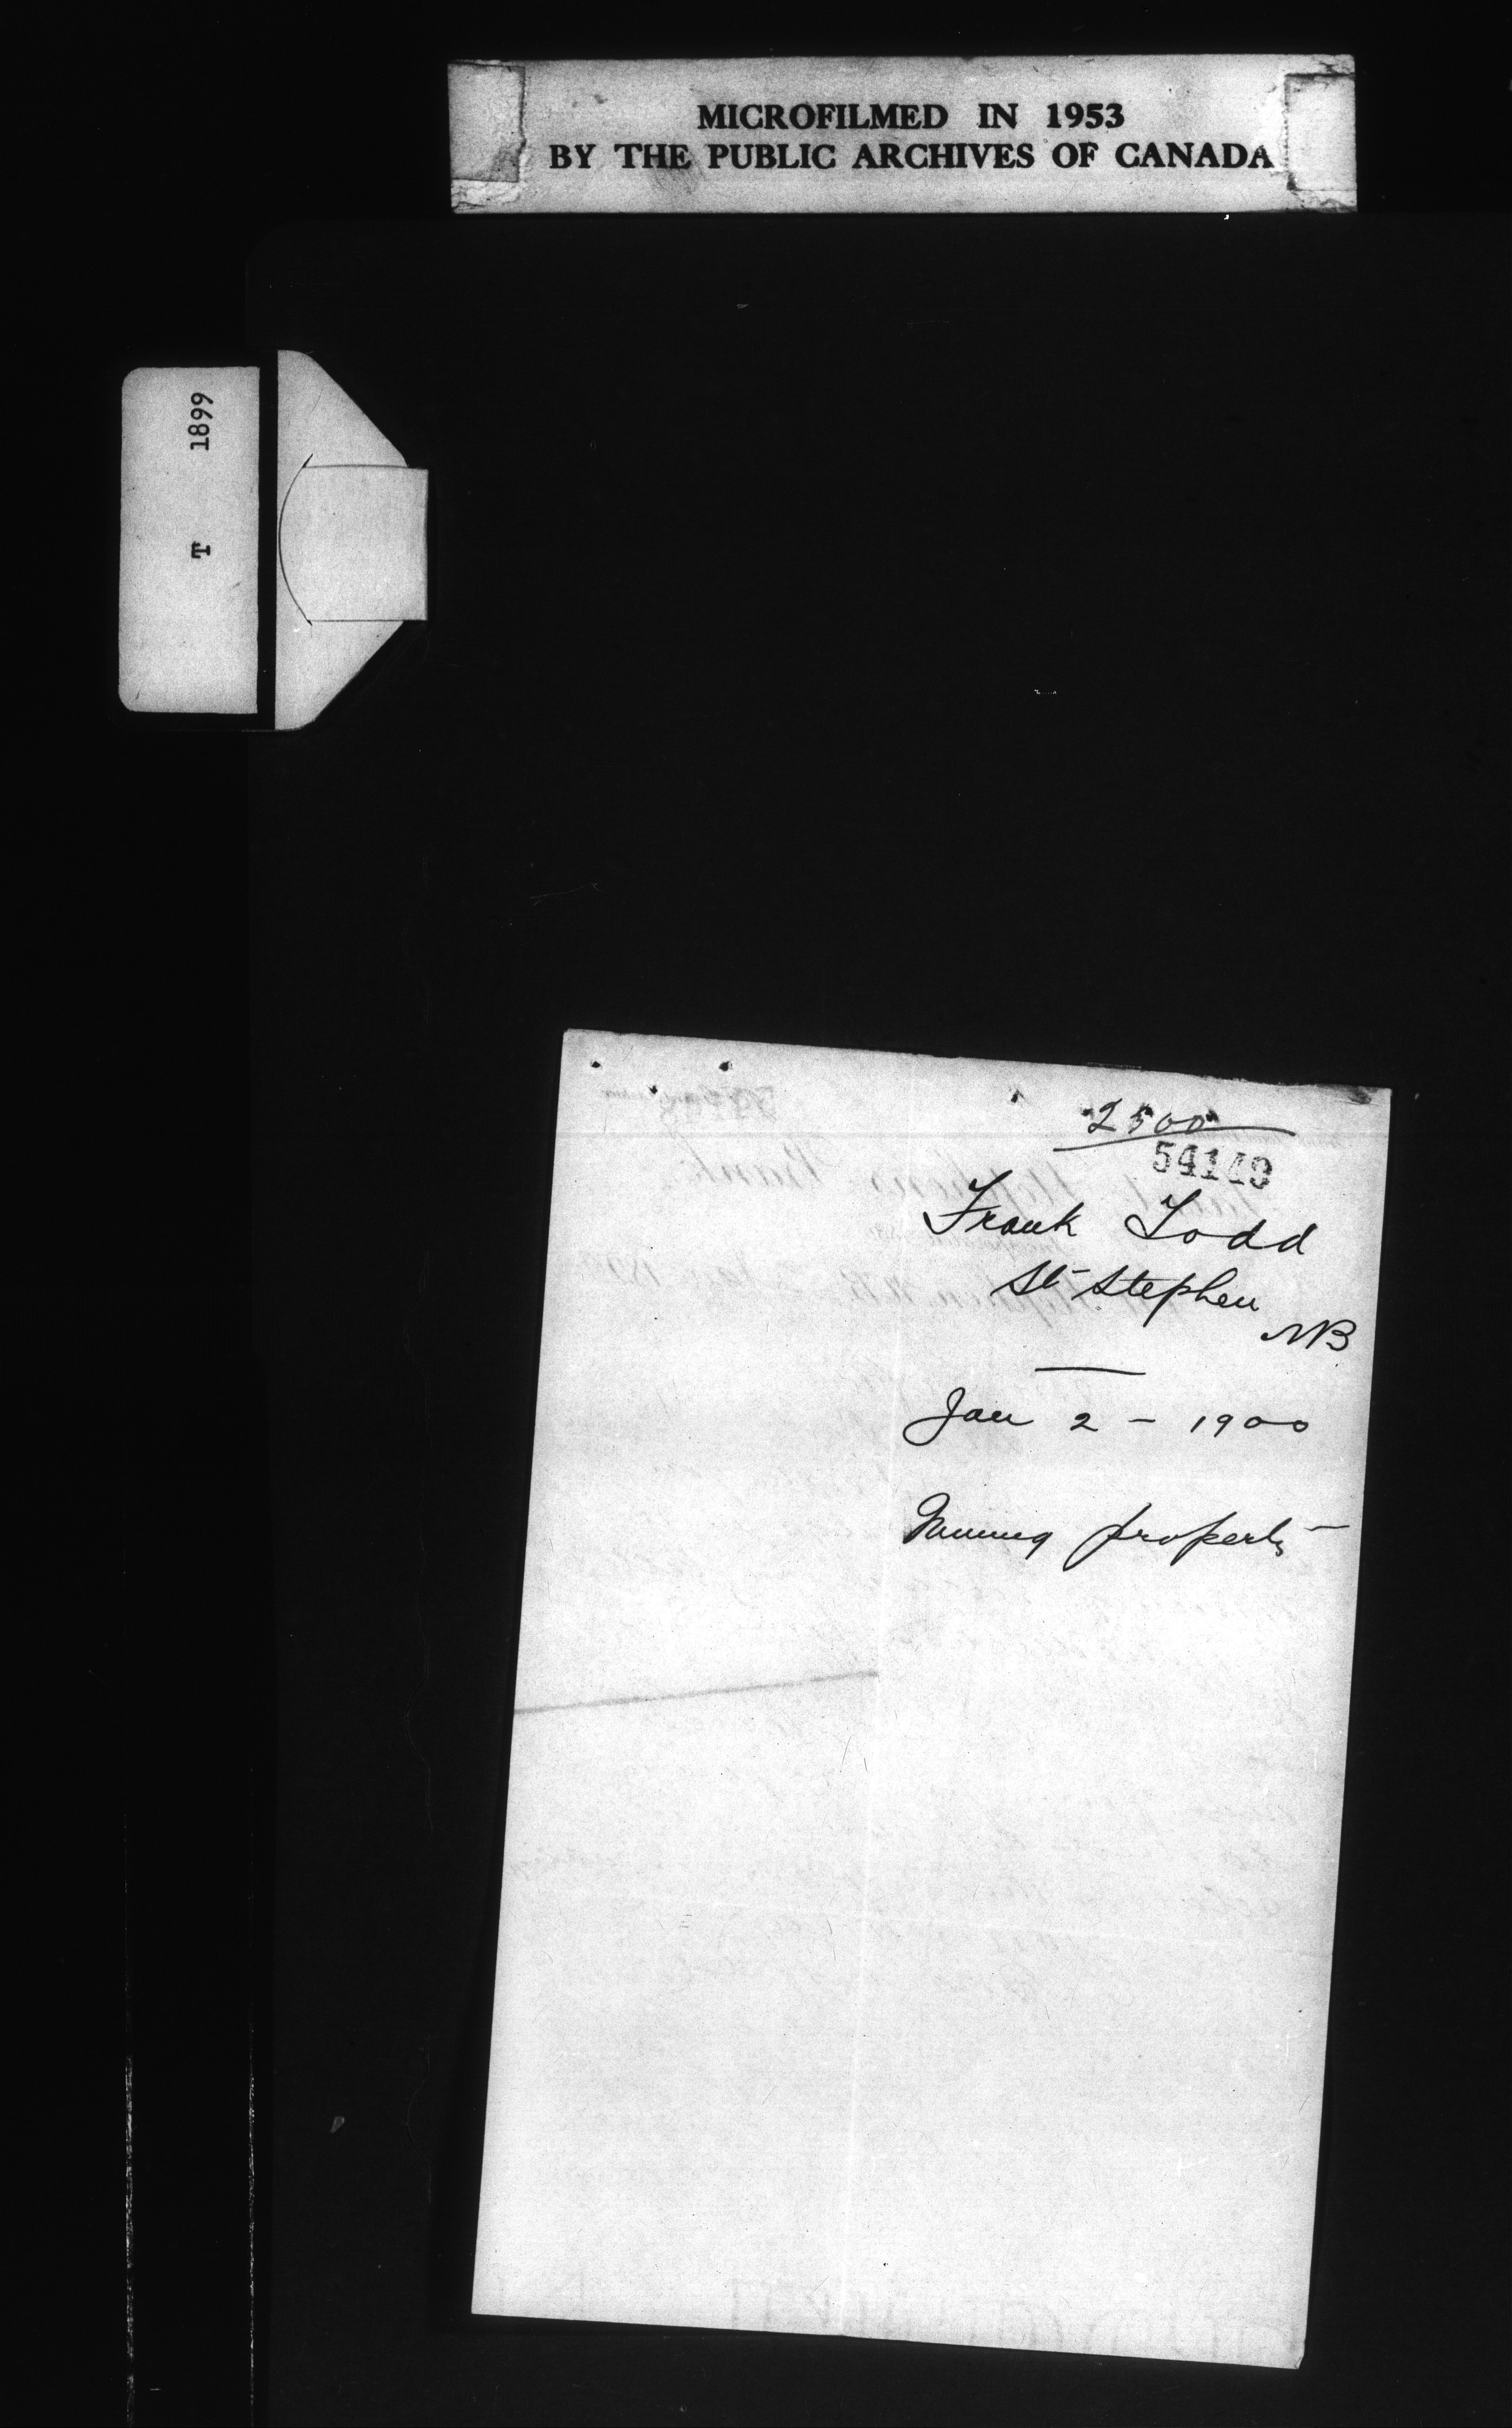 MICROFILMED IN 1953
BY THE PUBLIC ARCHIVES OF CANADA
T 1899
2500
54149
Frank Todd
St Stephen
NB
Jan 2 - 1900
Mining property